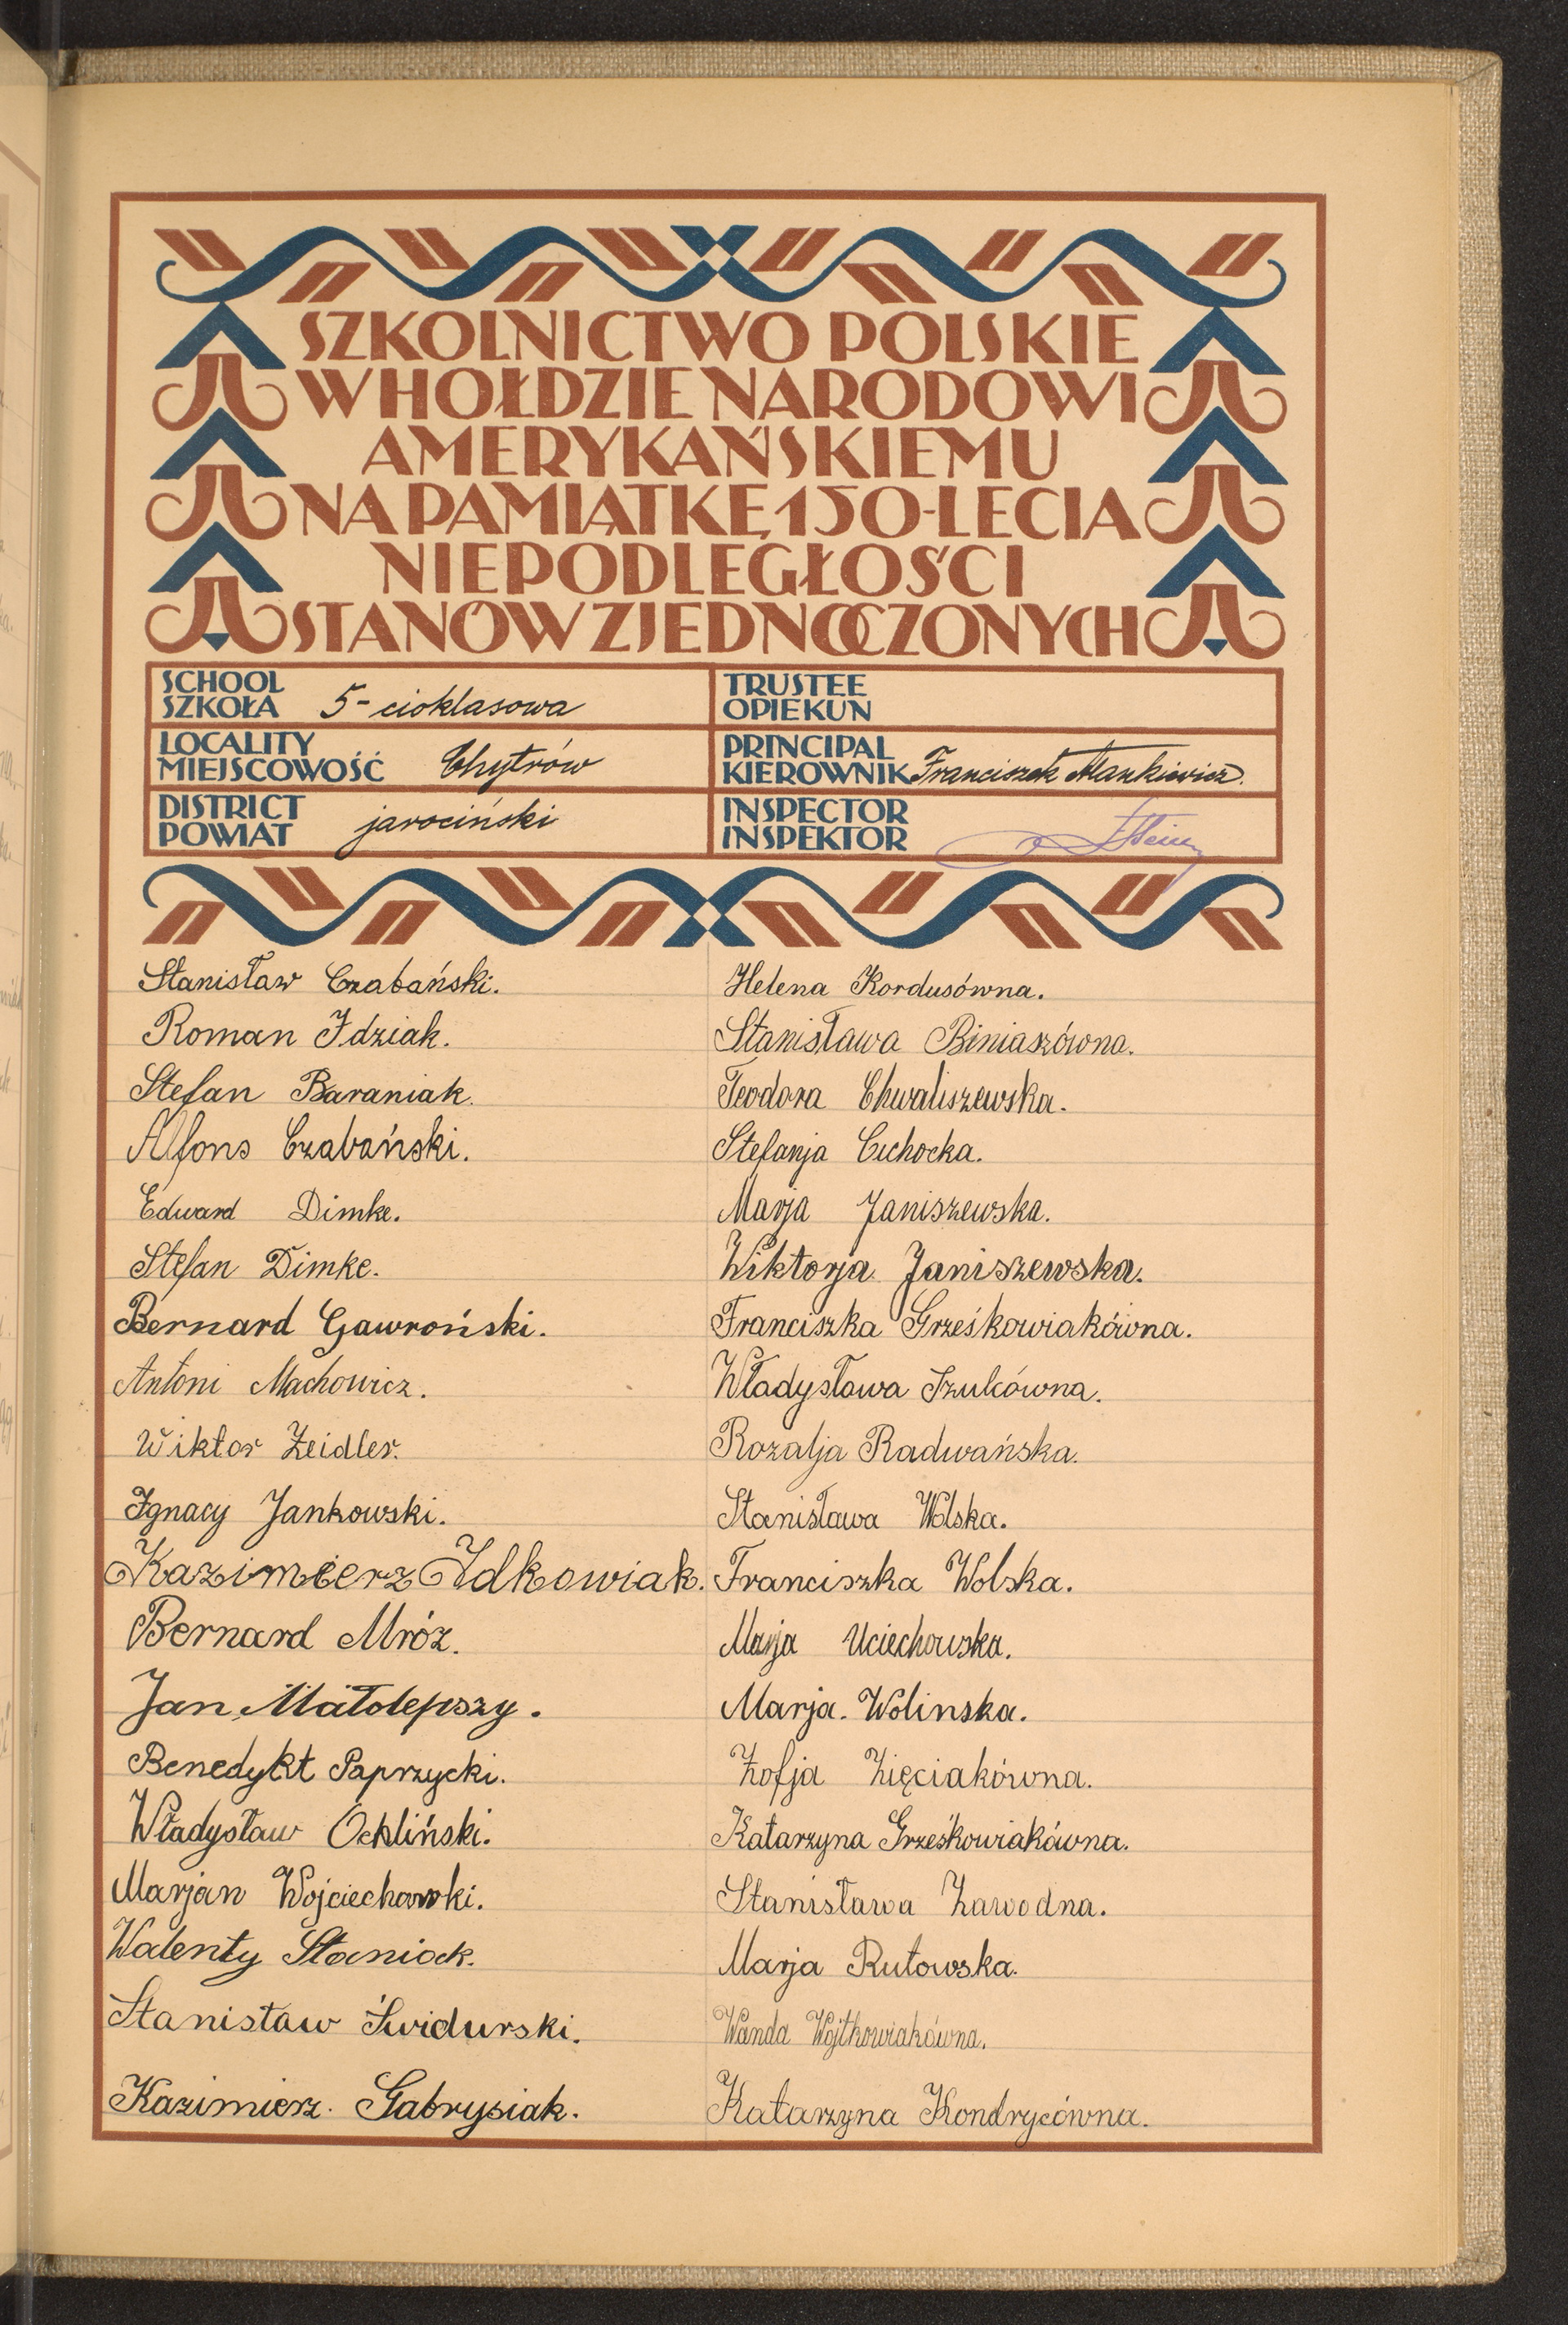 SZKOLNICTWO POLSKIE
W HOŁDZIE NARODOWI
AMERYKAŃSKIEMU
NA PAMIĄTKĘ 150-LECIA
NIEPODLEGŁOŚCI
STANÓW ZJEDNOCZONYCH
SCHOOL
SZKOŁA 5-cioklasowa
TRUSTEE
OPIEKUN
LOCALITY
MIEJSCOWOŚĆ Chytrów
PRINCIPAL
KIEROWNIK Franciszek Mankiewicz.
DISTRICT
POWIAT jarociński
INSPECTOR
INSPEKTOR
Stanisław Czabański.
Roman Idziak.
Stefan Baraniak.
Alfons Czabański.
Edward Dimke.
Stefan Dimke.
Bernard Gawroński.
Antoni Machowicz.
Wiktor Zeidler.
Ignacy Jankowski.
Kazimierz Idkowiak.
Bernard Mróz.
Jan Małolepszy.
Benedykt Paprzycki.
Władysław Ochliński.
Marjan Wojciechowski.
Walenty Staniak.
Stanisław Świdurski.
Kazimierz Gabrysiak.
Helena Kordusówna.
Stanisława Biniaszówna.
Teodora Chwaliszewska.
Stefanja Cichocka.
Marja Janiszewska.
Wiktorja Janiszewska.
Franciszka Grześkowiakówna.
Władysława Szulcówna.
Rozalja Radwańska.
Stanisława Wolska.
Franciszka Wolska.
Marja Uciechowska.
Marja. Wolinska.
Zofja Zięciakówna.
Katarzyna Grześkowiakówna.
Stanisława Zawodna.
Marja Rutowska.
Wanda Wojtkowiakówna.
Katarzyna Kondrycówna.